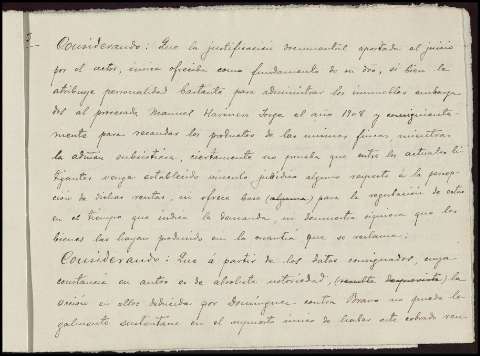 Considerando: Que la justificación documental aportada al juicio
por el actor, única ofrecida como fundamento de su dro, si bien le
atribuye personalidad bastante para administrar los inmuebles embarga-
dos al procesado Manuel el año 1908 y consiguiente-
mente para recaudar los productos de las mismas fincas mientras
la admón subsistiera, ciertamente no prueba que entre los actuales li-
tigantes venga establecido vínculo jurídico alguno respecto á la percep-
ción de dichas rentas, ni ofrece base (alguna) para la regulación de estas
en el tiempo que indica la demanda, ni demuestra siquiera que los
bienes las hayan producido en la cuantía que se reclama:
Considerando: Que á partir de los datos consignados, cuya
constancia en autos es de absoluta notoriedad, (resulta) la
acción en ellos deducida por Dominguez contra Bravo no puede le-
galmente sustentarse en el supuesto único de haber este cobrado ren-